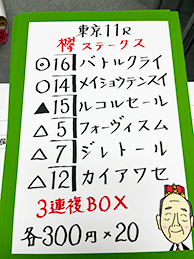 東京11R
欅ステークス
◎16 バトルクライ
○14 メイショウテンスイ
▲15 ルコルセール
△5 フォーヴィスム
△7 ジレトール
△12 カイアワセ
3連複BOX
各300円×20